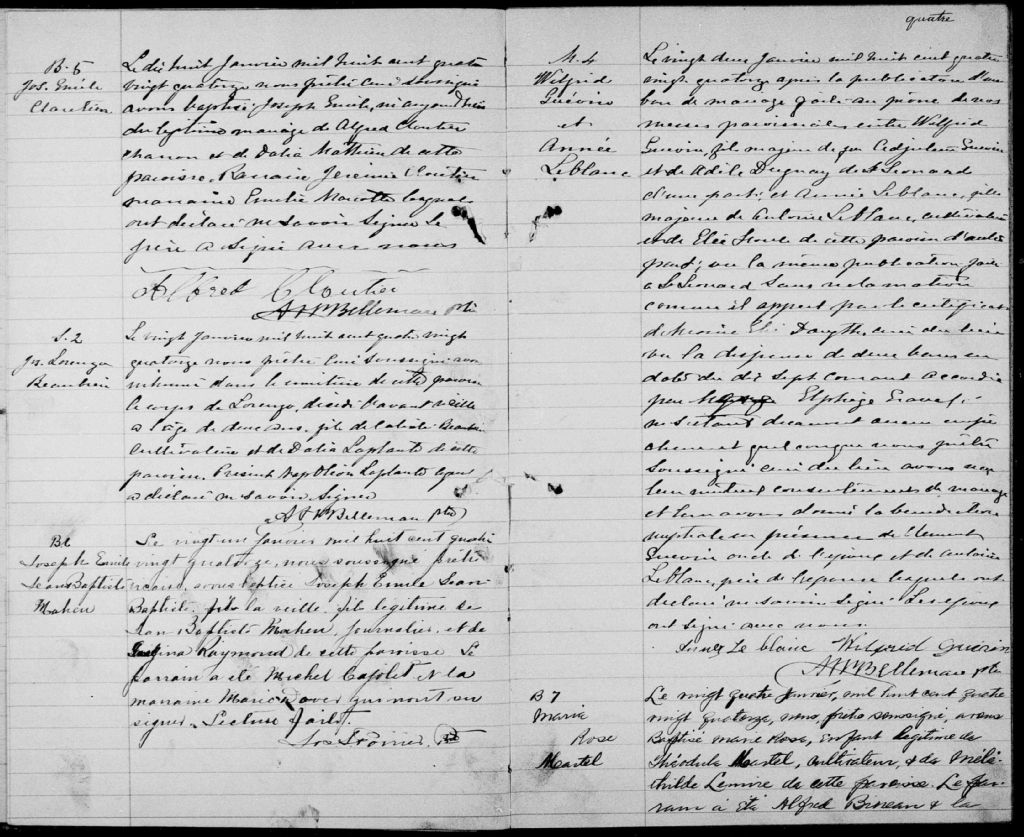 B-5
Jos. Emile
Cloutier
Le dix huit Janvier mil huit cent quatre
vingt quatorze nous prêtre curé soussigné
avons baptisé Joseph Emile, né aujourd'hui
du légitime mariage de Alfred Cloutier
charron et de Dalia Mathieu de cette
paroisse. Parrain Jérémie Cloutier
marraine Emelie Marcotte lesquels
ont déclaré ne savoir signer Le
père a signé avec nous
Alfred Cloutier
A H Bellemare ptre
S. 2
Jos. Lorenzo
Beaubien
Le vingt Janvier mil huit cent quatre vingt
quatorze nous prêtre curé soussigné avons
inhumé dans le cimetière de cette paroisse
le corps de Lorenzo, décédé l'avant veille
a l'âge de deux ans, fils de Calixte Beaubien
cultivateur et de Dalia Laplante de cette
paroisse. Présent Napoléon Laplante lequel
a déclaré ne savoir signer
A H Bellemare ptre
B6
Joseph Emile
Jean Baptiste
Maheu
Le vingt un Janvier mil huit cent quatre
vingt quatorze, nous soussigné prêtre
vicaire, avons baptisé Joseph Emile Jean-
Baptiste né la veille, fils légitime de
Jean Baptiste Maheu, journalier, et de
Raymond de cette paroisse. Le
parrain a été Michel et la
marraine Marie qui n'ont su
signer. Lecture faite.
ptre
quatre
M. 4
Wilfrid
Guévin
et
Année
Leblanc
Le vingt deux Janvier mil huit cent quatre
vingt quatorze après la publication d'un
ban de mariage faite au prône de nos
messes paroissiales entre Wilfrid
Guévin, fils majeur de feu Guévin
et de Adèle Duguay de St Léonard
d'une part; et Annie Leblanc, fille
majeure de Antoine Leblanc, cultivateur
et de de cette paroisse d'autre
part; vu la même publication faite
a St Léonard sans réclamation
comme il appert par le certificat
de Messire curé du lieu
vu la dispense de deux bans en
date du dix sept courant accordée
par Elphège Gravel;
ne s'étant découvert aucun empê
chement quelconque nous prêtre
soussigné curé du lieu avons reçu
leur mutuel consentement de mariage
et leur avons donné la bénédiction
nuptiale en présence de Clément
Guévin oncle de l'époux et de Antoine
Leblanc, père de l'épouse lesquels ont
déclaré ne savoir signer Les époux
ont signé avec nous.
Le blanc Wilfrid Guévin
A H Bellemare ptre
B 7
Maria
Rose
Martel
Le vingt quatre janvier, mil huit cent quatre
vingt quatorze, nous, prêtre soussigné, avons
Baptisé Marie Rose, enfant légitime de
Théodule Martel, cultivateur, & de Méla-
thilde Lemire de cette paroisse. Le par-
rain a été Alfred Bineau & la